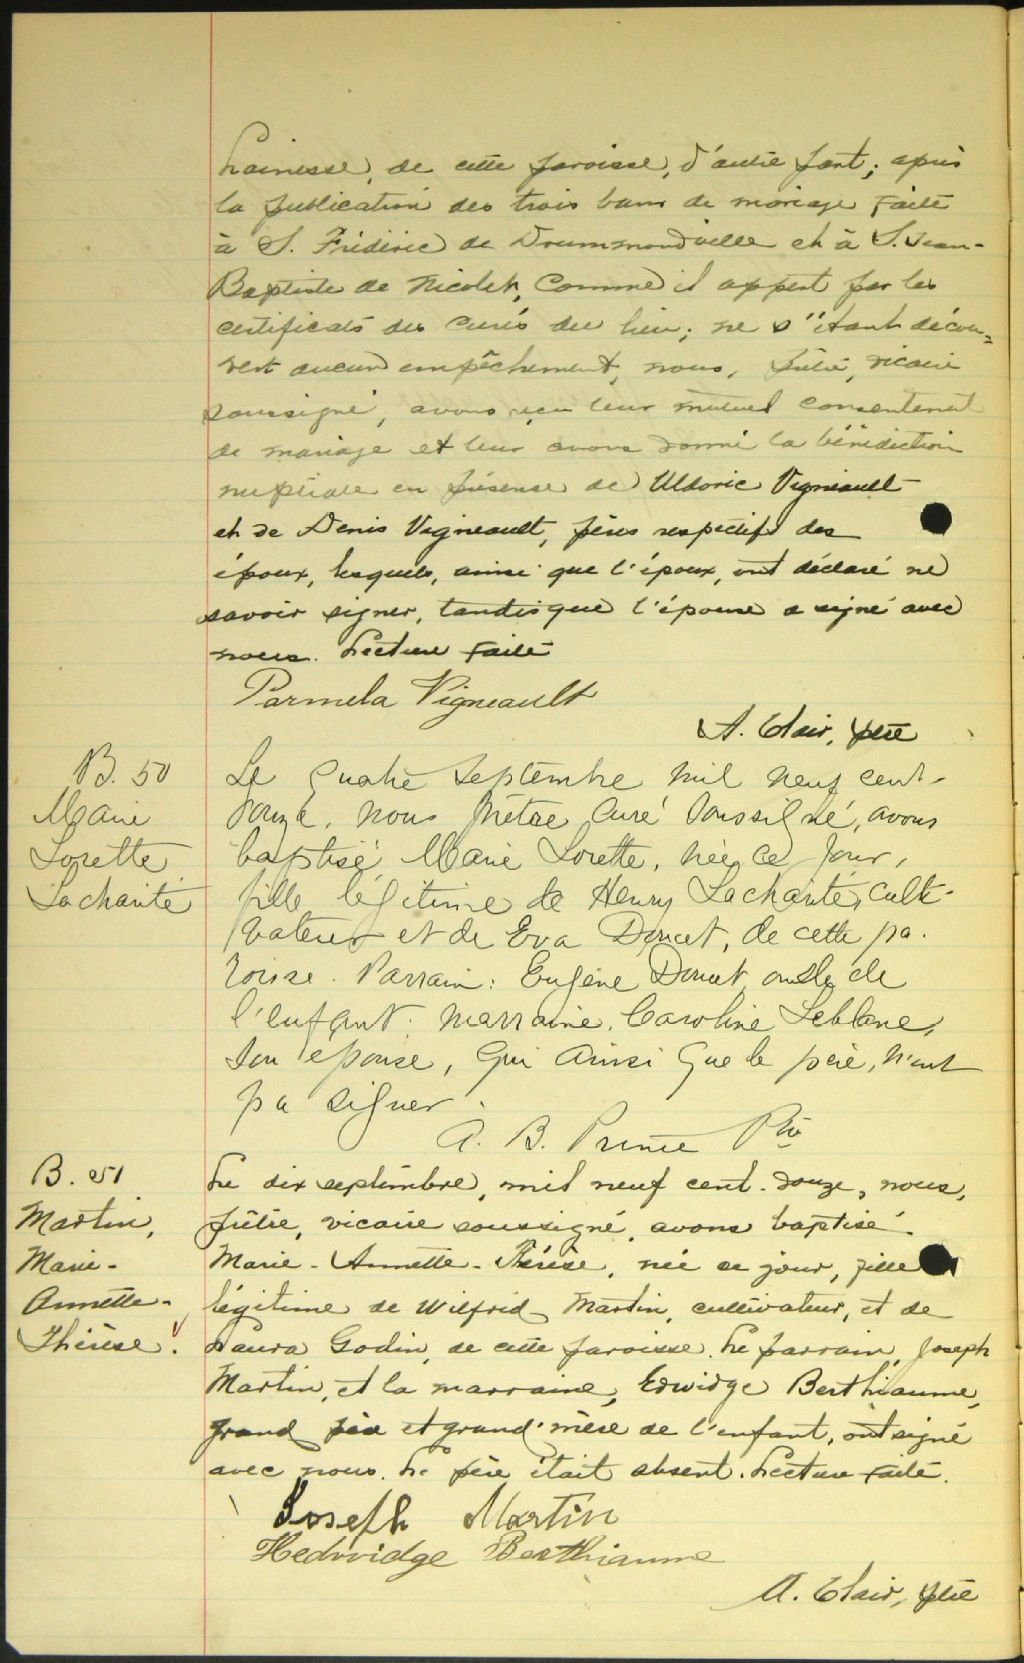 Hainesse, de cette paroisse, d'autre part; après
la publication des trois bans de mariage faite
à S. Frédéric de Drummondville et à S. Jean-
Baptiste de Nicolet, comme il appert par les
certificats des curés du lieu; ne s'étant décou=
vert aucun empêchement, nous, prêtre, vicaire
soussigné, avons reçu leur mutuel consentement
de mariage et leur avons donné la bénédiction
nuptiale en présence de Uldoric Vigneault
et de Denis Vigneault, pères respectifs des
époux, lesquels, ainsi que l'époux, ont déclaré ne
savoir signer, tandis que l'épouse a signé avec
nous. Lecture faite
Parmela Vigneault
A. Clair, ptre
B. 50
Marie
Lorette
Lacharité
Le quatre Septembre mil neuf cent-
douze, nous Prêtre Curé soussigné, avons
baptisé Marie Lorette, née ce jour,
fille légitime de Henry Lacharité, culti-
vateur et de Eva Doucet, de cette pa-
roisse. Parrain: Eugène Doucet oncle de
l'enfant; marraine, Caroline Leblanc,
son épouse, qui ainsi que le père, n'ont
pu signer.
A. B. Prince Ptre
B. 51
Martin,
Marie-
Annette-
Thérèse.
Le dix septembre, mil neuf cent-douze, nous,
prêtre, vicaire soussigné, avons baptisé
Marie-Annette-Thérèse, née ce jour, fille
légitime de Wilfrid Martin, cultivateur, et de
Laura Godin, de cette paroisse. Le parrain, Joseph
Martin, et la marraine, Edwidge Berthiaume,
grand père et grand'mère de l'enfant, ont signé
avec nous. Le père était absent. Lecture faite.
Joseph Martin
Hedwidge Berthiaume
A. Clair, ptre